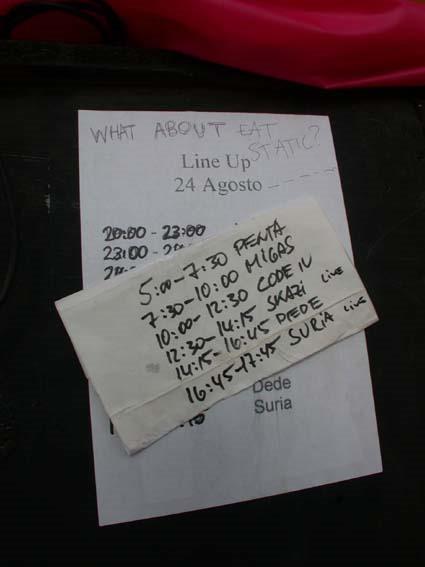 WHAT ABOUT EAT
STATIC?
Line Up
24 Agosto
20:00 - 23:00
23:00 -
5:00-7:30 PENTA
7:30-10:00 MIGAS
10:00-12:30 CODE IV
12:30-14:15 SKAZI LIVE
14:15-16:45 DEDE
16:45-17:45 SURIA LIVE
Dede
Suria